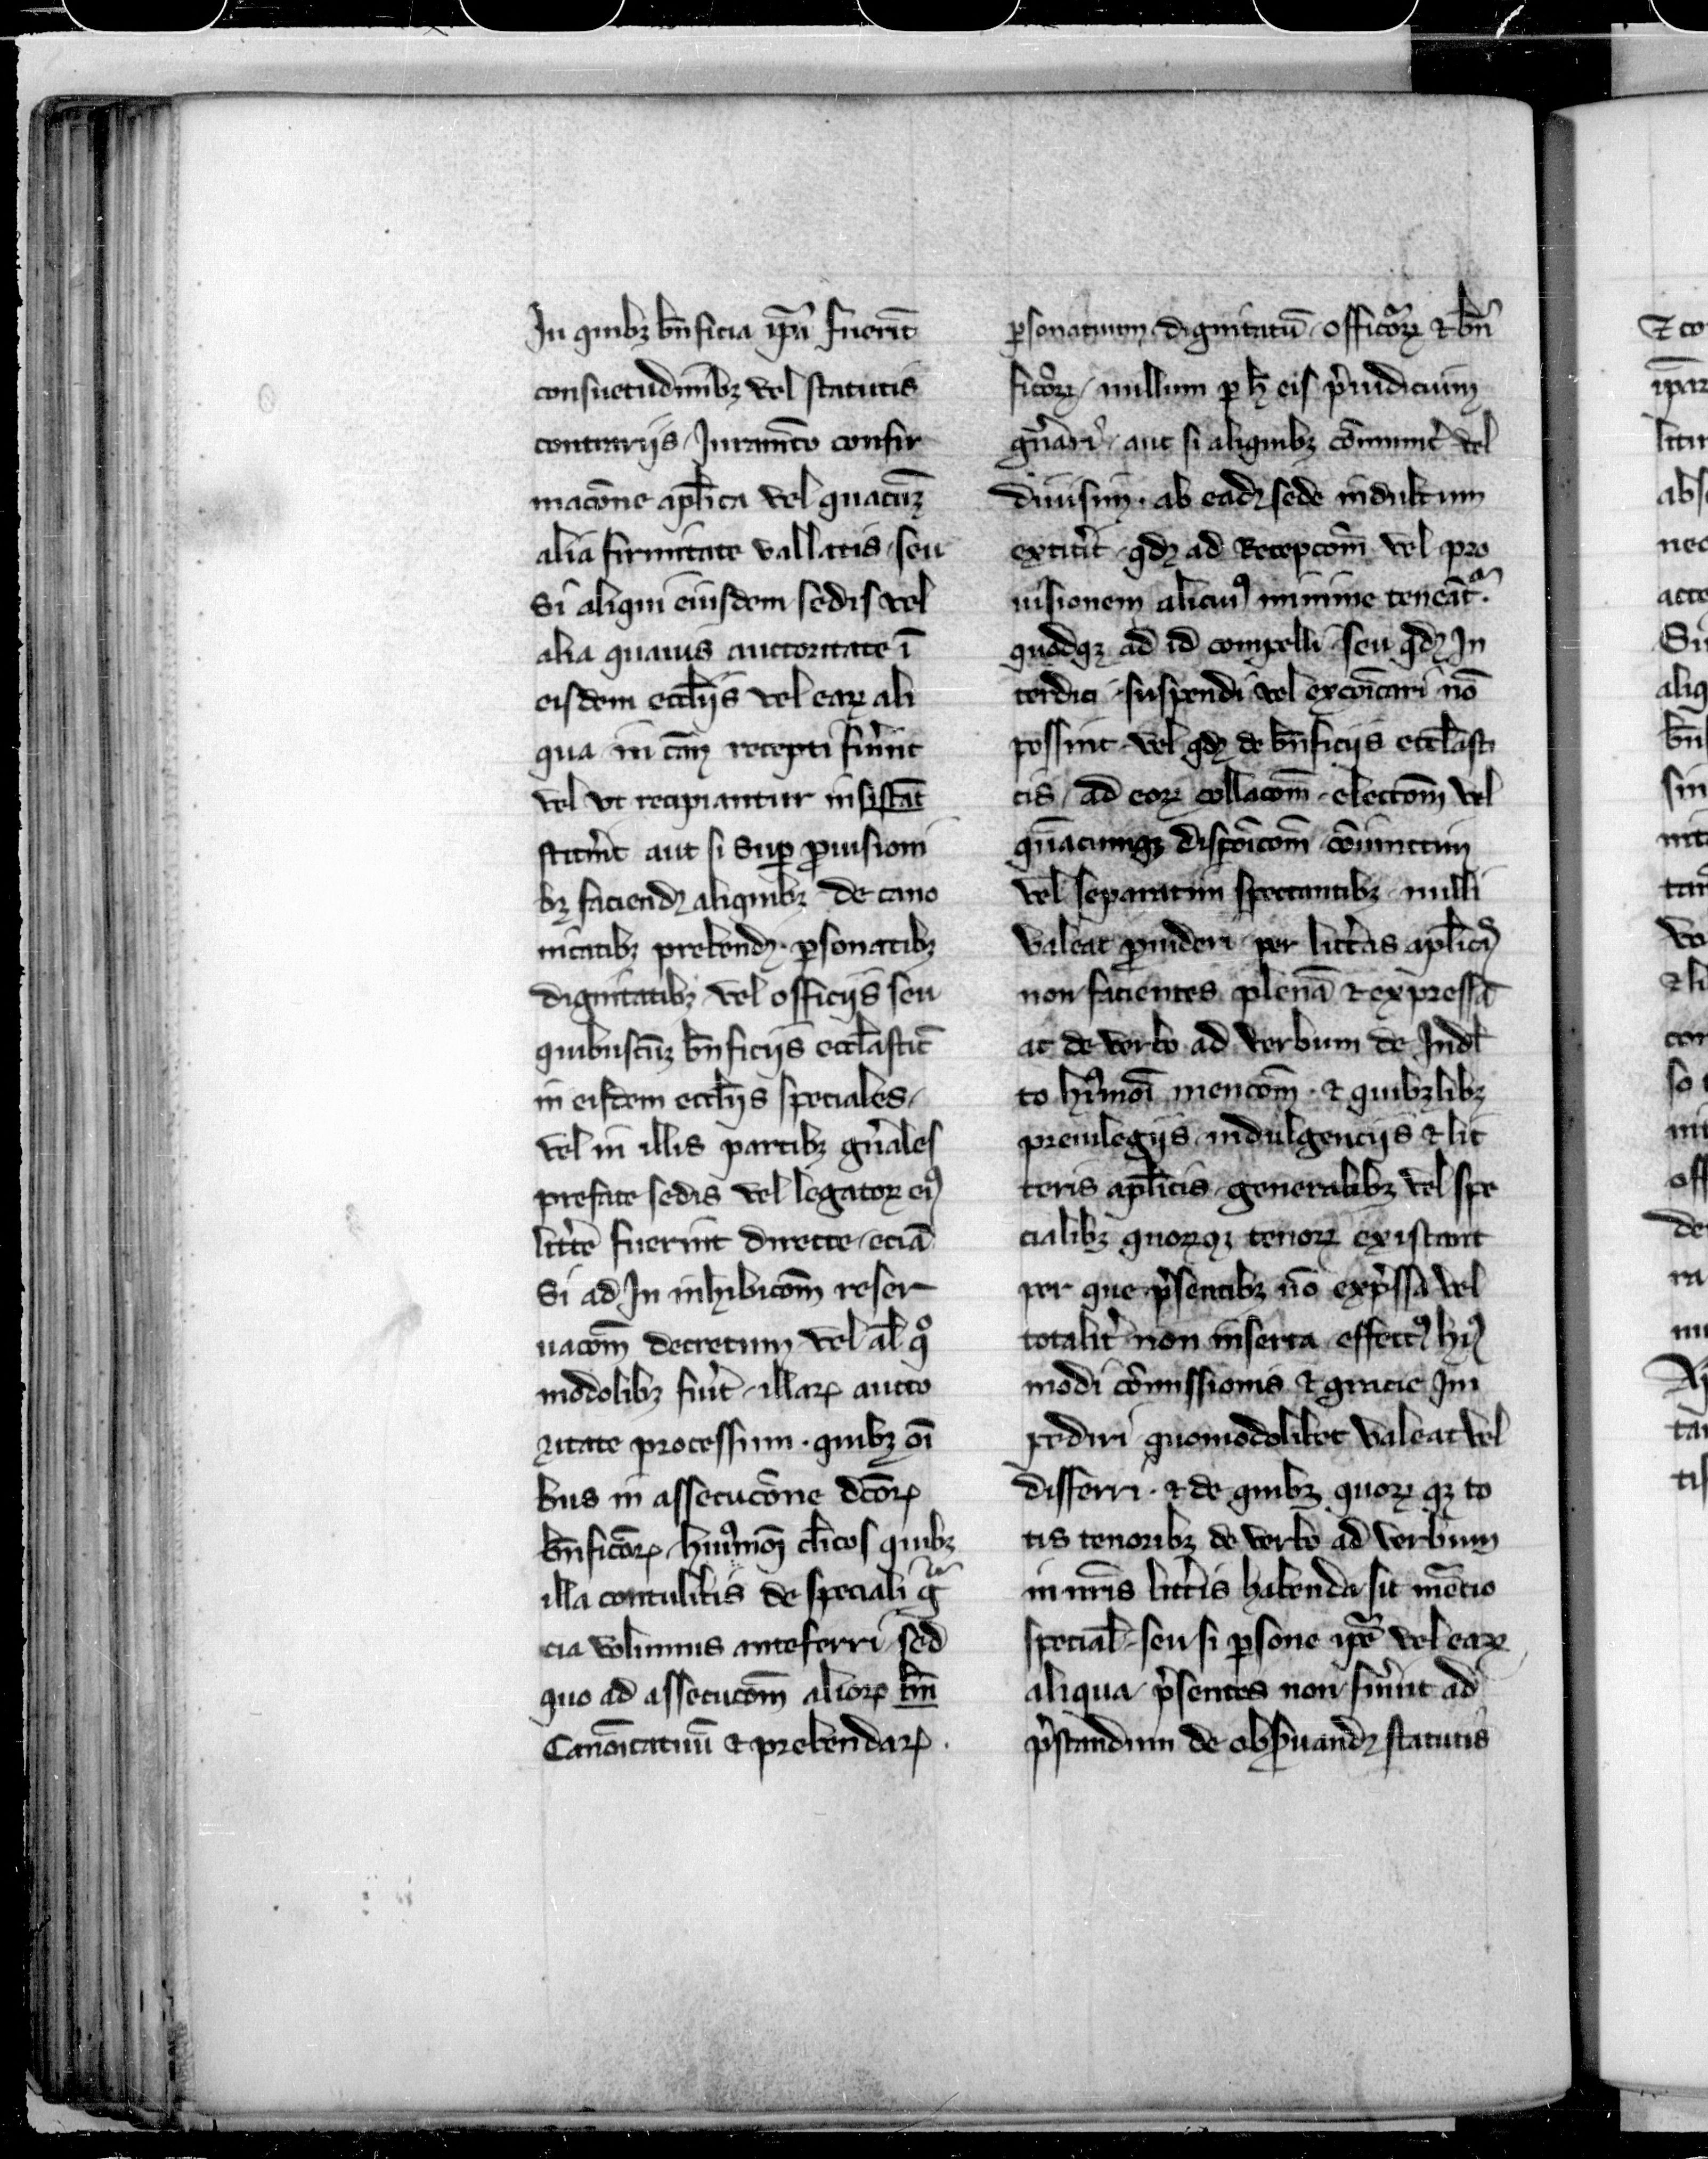 In quibꝫ bn̄ficia ip̄a fuerīt
consuetudinibꝫ vel statutis
contrarijs Juramēto confir
macōne apl̄ica vel quacūꝫ
alia firmitate vallatis seu
Si aliqui eiusdem sedis vel
alia quauis auctoritate ī
eisdem eccl̄ijs vel eaꝝ ali
qua in cāꝫ recepti fuer̄int
vel vt recipiantur insistāt
aut si Sup̱ ꝓuisioni
bꝫ faciendꝫ aliquibꝫ de cano
nicatibꝫ prebendꝫ ꝑsonatibꝫ
dignitatibꝫ vel officijs seu
quibuscūꝫ bn̄ficijs eccl̄astic̄
in eisdem eccl̄ijs speciales
vel in illis partibꝫ gn̄ales
prefate sedis vel legatoꝝ eiꝰ
litt̄e fuerint directe eciā
Si ad In inhibicōm reser
uacōm decretum vel al̄ qͦ
modolibꝫ fiuīt illaꝝ aucto
ritate processum quibꝫ oī
bus in assecucōne dc̄oꝝ
bn̄ficōꝝ huiꝰmōi cl̄icos quibꝫ
illa contulitis de speciali gͣ
cia volumus anteferri sed
quo ad assecucōm alioꝝ bn̄
Canōicatuū et prebendaꝝ
ꝑsonatuum dignitatū officōꝝ et bn̄
ficōꝝ nullum ꝑ h̄ eis p̄iudiciuꝫ
gn̄ari aut si aliquibꝫ cōmunit̄ vel
diuisim ab eadꝫ sede indultum
extit̄it qdꝫ ad Recepcōm vel pro
uisionem alicuiꝰ minime teneāt
quodqꝫ ad id compelli seu qdꝫ In
terdici suspendi vel excōicari nō
possint vel qdꝫ de bn̄ficijs eccl̄asti
cis ad eoꝝ collacōm electōm vel
qn̄acumqꝫ dispoīcōm cōniunctim
vel separatim spectantibꝫ nulli
valeat ꝓuideri per litt̄as apl̄icꝭ
non facientes plenā et expressā
ac de verbo ad verbum de Indl̄
to hꝰmoī mencōm et quibꝫlibꝫ
preuilegijs indulgencijs et lit
teris apl̄icis generalibꝫ vel spe
cialibꝫ quoꝝqꝫ tenoꝝ existant
per que p̄sentibꝫ nō exp̄ssa vel
totalit̄ non inserta effectꝰ hꝰ
modi cōmissionis et gracie Im
pediri quomodolibet valeat vel
differri et de quibꝫ quoꝝ qꝫ to
tis tenoribꝫ de verbo ad verbum
in nr̄is litt̄is habenda sit mēcio
special̄ seu si ꝑsone ip̄e vel eaꝝ
aliqua p̄sentes non fuer̄int ad
p̄standum de obẜuandꝫ statutis